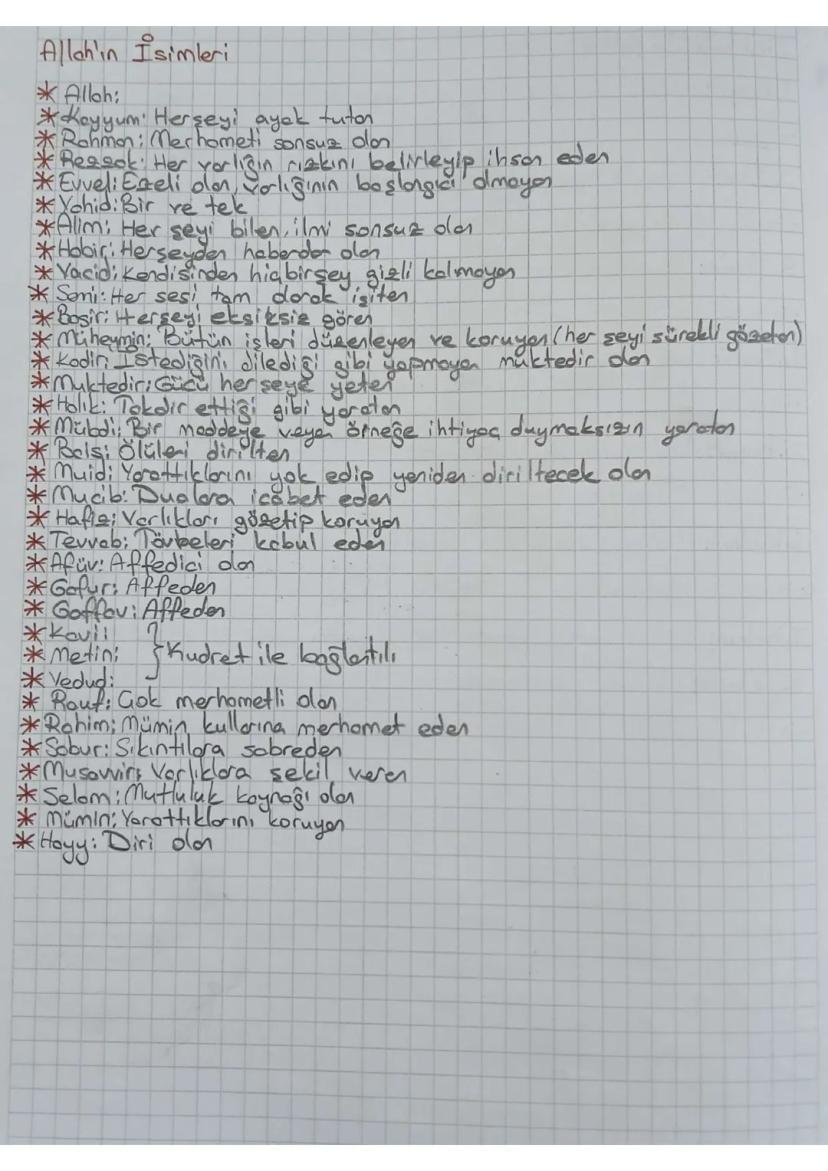 Allah'ın İsimleri
* Allah:
* Kayyum: Herşeyi ayak tutan
* Rahman: Merhameti sonsuz olan
* Rezzak: Her varlığın rızkını belirleyip ihsan eden
* Evvel: Ezeli olan, varlığının başlangıcı olmayan
* Vahid: Bir ve tek
* Alim: Her şeyi bilen, ilmi sonsuz olan
* Habir: Herşeyden haberdar olan
* Vacid: Kendisinden hiçbirşey gizli kalmayan
* Semi: Her sesi tam olarak işiten
* Basir: Herşeyi eksiksiz gören
* Müheymin: Bütün işleri düzenleyen ve koruyan (her şeyi sürekli gözeten)
* Kadir: İstediğini dilediği gibi yapmaya muktedir olan
* Muktedir: Gücü herşeye yeten
* Halik: Takdir ettiği gibi yaratan
* Mübdi: Bir maddeye veya örneğe ihtiyaç duymaksızın yaratan
* Bais: Ölüleri dirilten
* Muid: Yarattıklarını yok edip yeniden diriltecek olan
* Mucib: Dualara icabet eden
* Hafız: Varlıkları gözetip koruyan
* Tevvab: Tövbeleri kabul eden
* Afüv: Affedici olan
* Gafur: Affeden
* Gaffav: Affeden
* Kavi:
* Metin: } Kudret ile bağlantılı
* Vedud:
* Rauf: Çok merhametli olan
* Rahim: Mümin kullarına merhamet eden
* Sabur: Sıkıntılara sabreden
* Musavvir: Varlıklara şekil veren
* Selam: Mutluluk kaynağı olan
* Mümin: Yarattıklarını koruyan
* Hayy: Diri olan